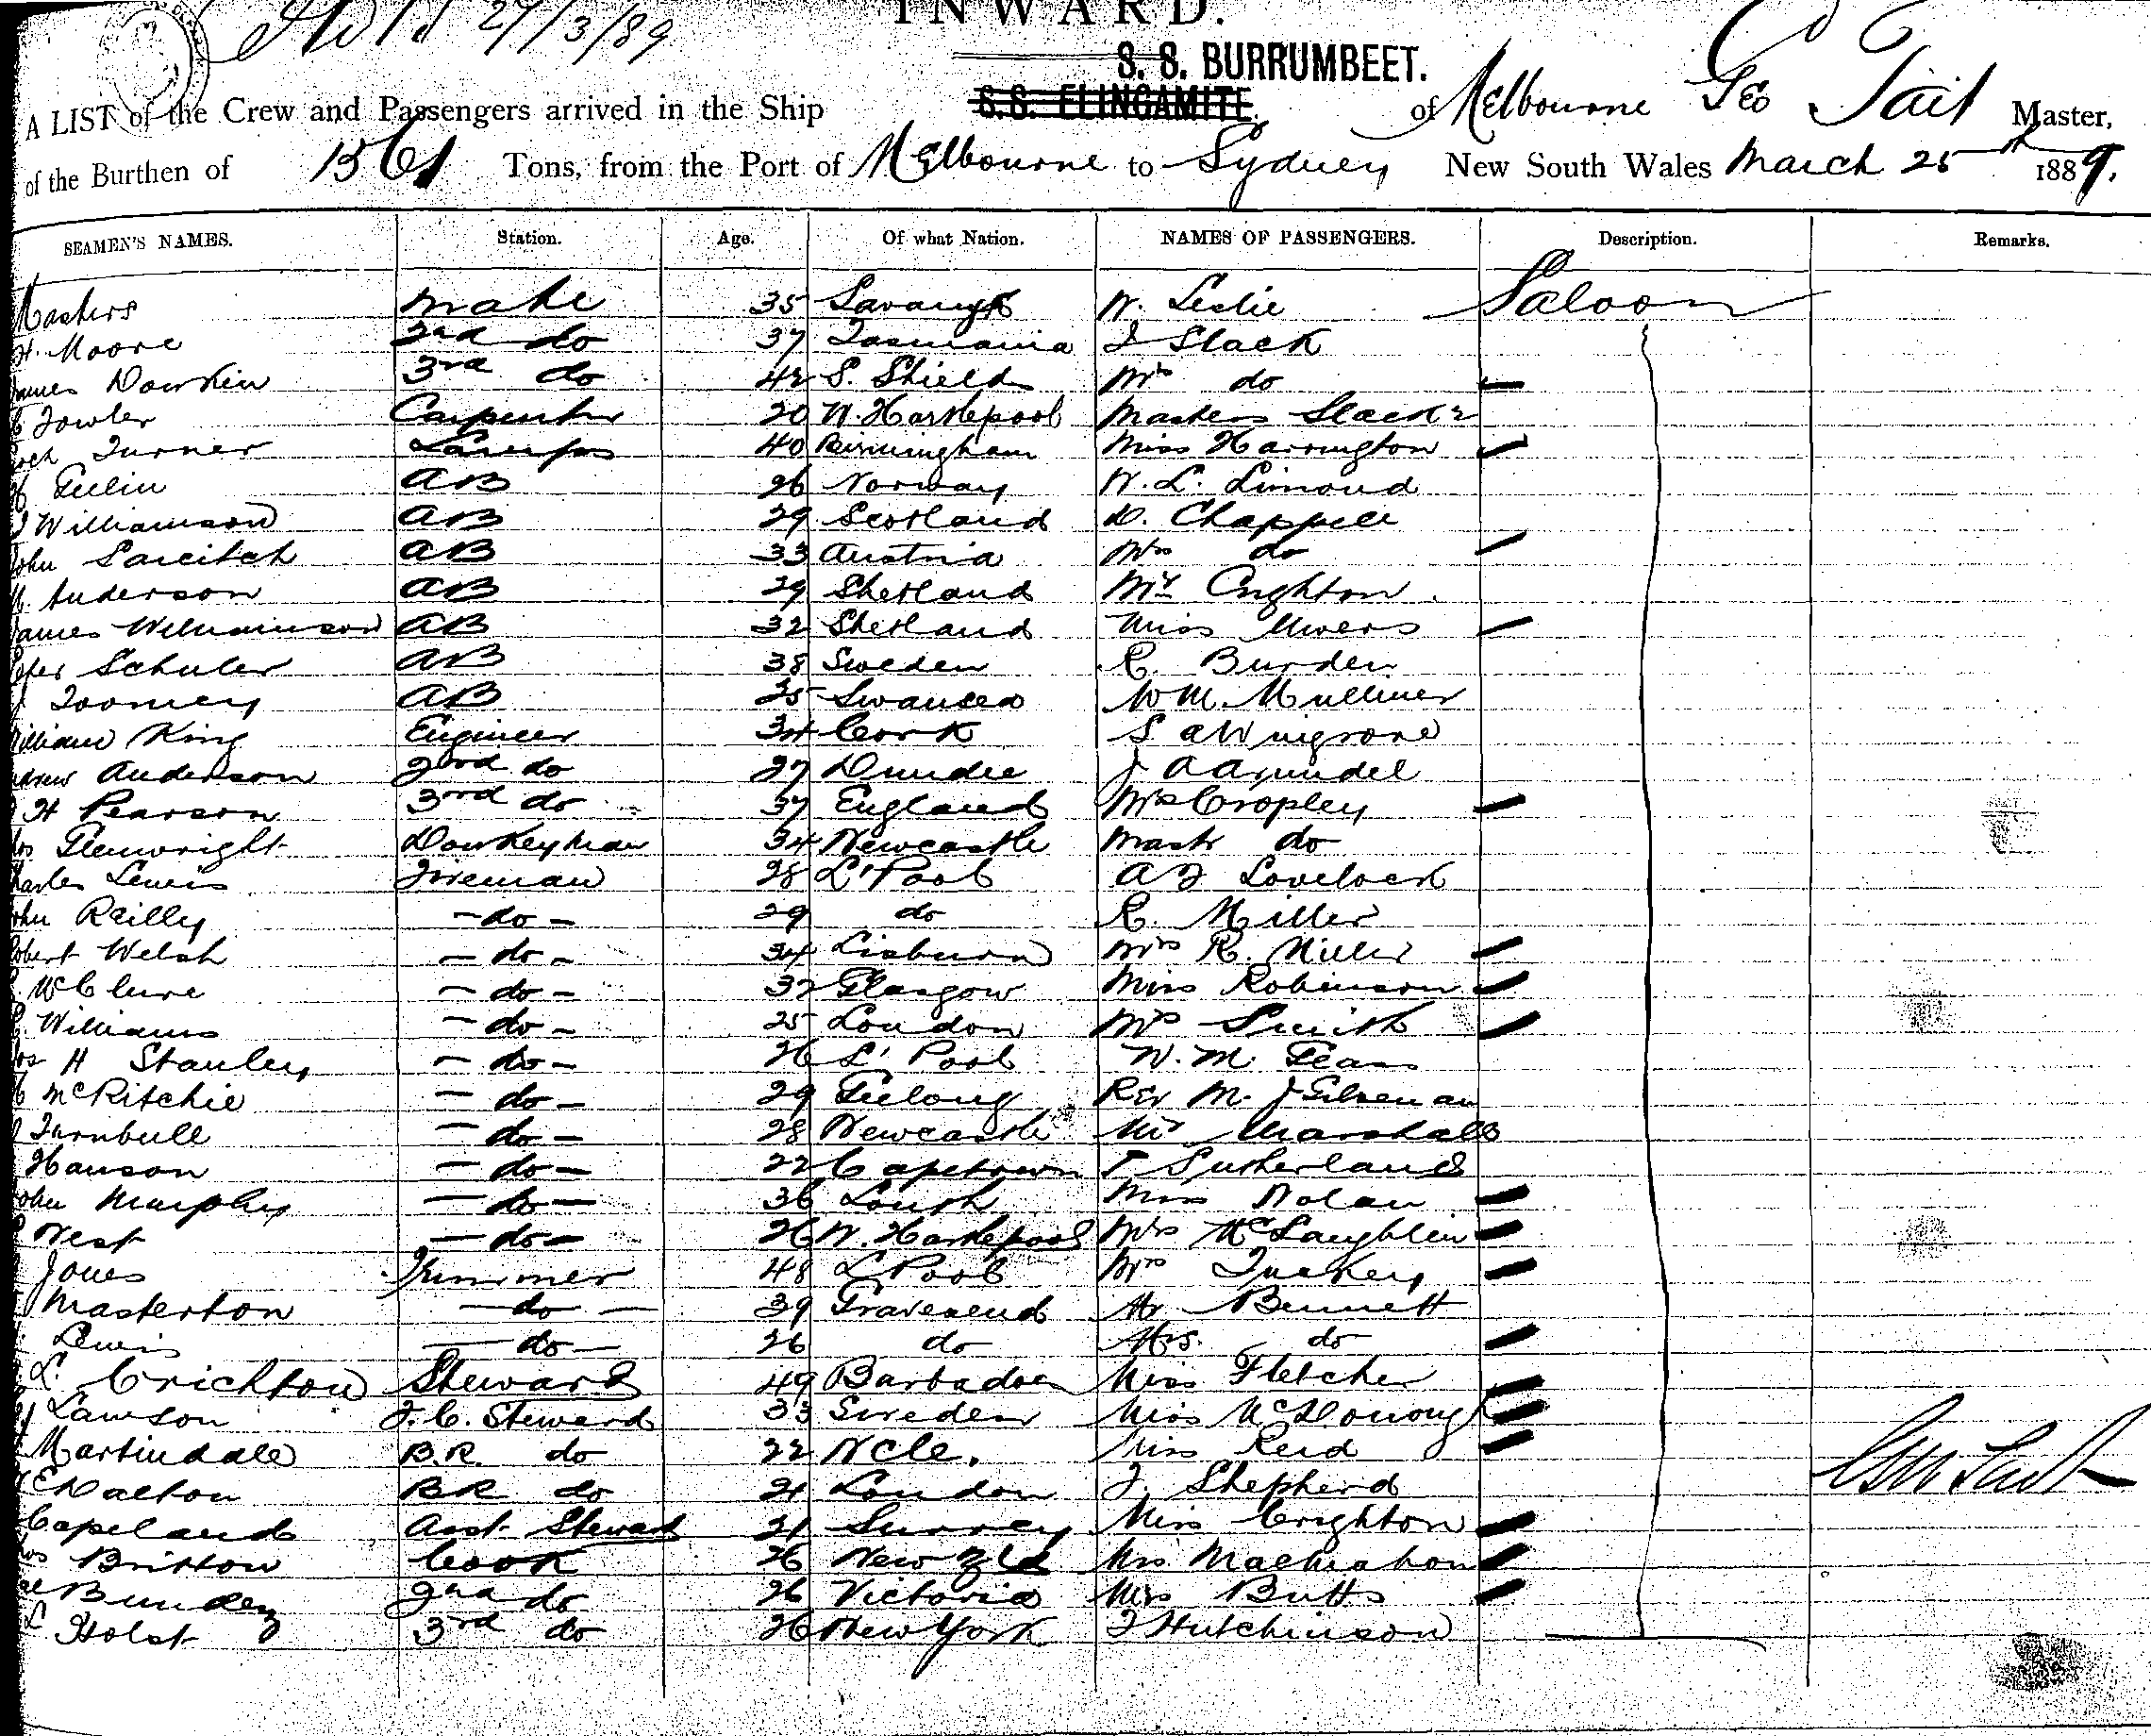 27/3/89
INWARD.
S. S. BURRUMBEET.
A LIST of the Crew and Passengers arrived in the Ship S.S. ELINGAMITE of Melbourne Geo Tait Master,
of the Burthen of 1561 Tons, from the Port of Melbourne to Sydney New South Wales March 25th 1889.
SEAMEN'S NAMES. Station. Age. Of what Nation. NAMES OF PASSENGERS. Description. Remarks.
Masters mate 35 W. Leslie Saloon
H. Moore 2nd do 37 Tasmania J Slack
James Dawkin 3rd do 42 S. Shields Mrs do
Fowler Carpenter 20 W. Hartlepool Masters Slack 2
Turner Lamps 40 Birmingham Miss Harrington
AB 26 Norway W. L. Limond
J Williamson AB 29 Scotland D. Chappell
John AB 33 Austria Mrs do
Anderson AB 29 Shetland Mr Crighton.
James Williamson AB 32 Shetland Miss
Peter Schuler AB 38 Sweden R. Burden
J Toomey AB 25 Swansea W M. Mulliner
William King Engineer 34 Cork S a Wingrove
Andrew Anderson 2nd do 27 Dundee J A Arundel
H Pearson 3rd do 37 England Mrs Cropley
Glenwright Donkeyman 34 Newcastle Mastr do
Charles Lewis Fireman 28 L'Pool A J Lovelock
John Reilly - do - 29 do R. Miller
Robert Welsh - do - 34 Lisburn Mrs R. Miller
McClure - do - 32 Glasgow Miss Robinson
Williams - do - 25 London Mrs Smith
H Stanley - do - 26 L'Pool W. M.
McRitchie - do - 29 Geelong Rev M. J
Turnbull - do - 28 Newcastle Mr Marshall
Hanson - do - 22 Capetown T Sutherland
John Murphy - do - 36 Louth Miss Nolan
West - do - 26 W. Hartlepool Mrs McLaughlin
Jones Trimmer 48 L'Pool Mrs Tuckey
Masterton - do - 39 Gravesend Mr Bennett
Lewis - do - 26 do Mrs. do
L. Crichton Steward 49 Barbadoes Miss Fletcher
Lawson F. C. Steward 33 Sweden Miss McDonough
Martindale B.R. do 22 N'Cle. Miss Reid
Dalton B R do 21 London J. Shepherd
Copeland Asst. Steward 21 Surrey Miss Crighton
Britton Cook 26 New Zld Mrs Macmahon
Bundey 2nd do 26 Victoria Mrs Butts
Holst 3rd do 26 New York J Hutchinson